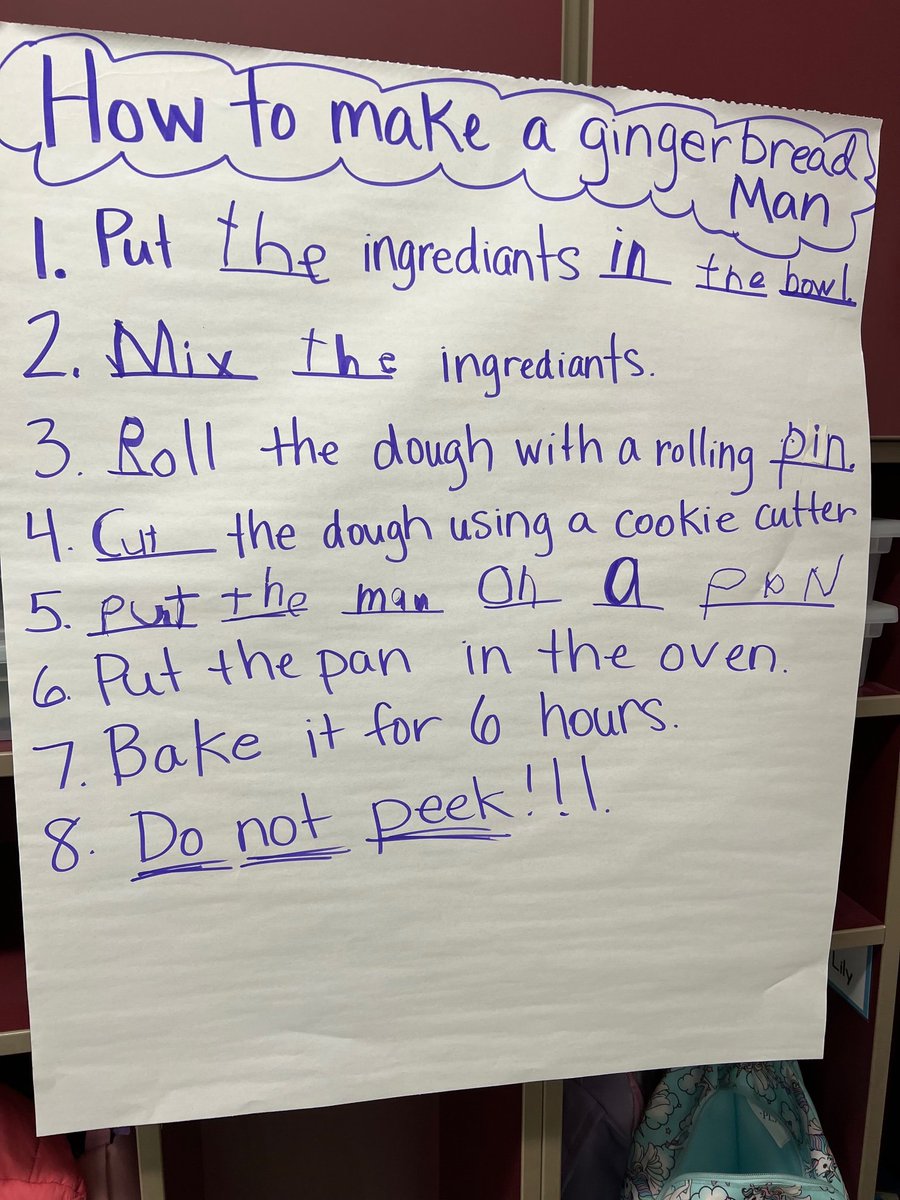 How to make a gingerbread
Man
1. Put the ingrediants in the bowl.
2. Mix the ingrediants.
3. Roll the dough with a rolling pin.
4. Cut the dough using a cookie cutter
5. put the man on a paN
6. Put the pan in the oven.
7. Bake it for 6 hours.
8. Do not peek!!!.
Lily